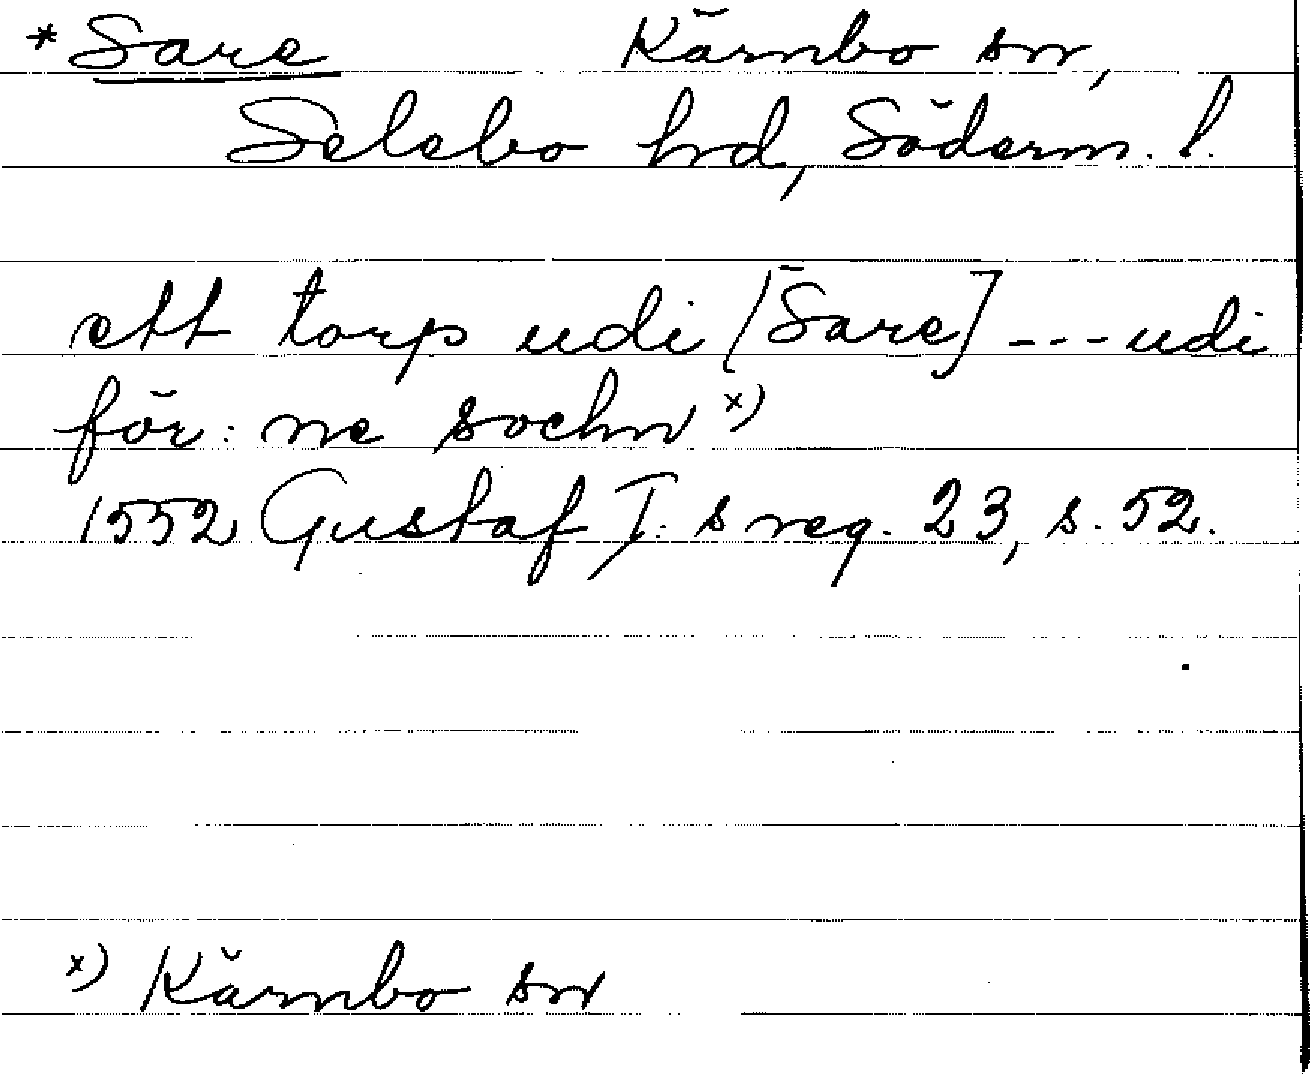 * Sare Kärnbo sn,
Selebo hd, Söderm. l.
ett torp udi [Sare] --- udi
för: ne sochn x)
1552 Gustaf I: s reg. 23, s. 52.
x) Kärnbo sn